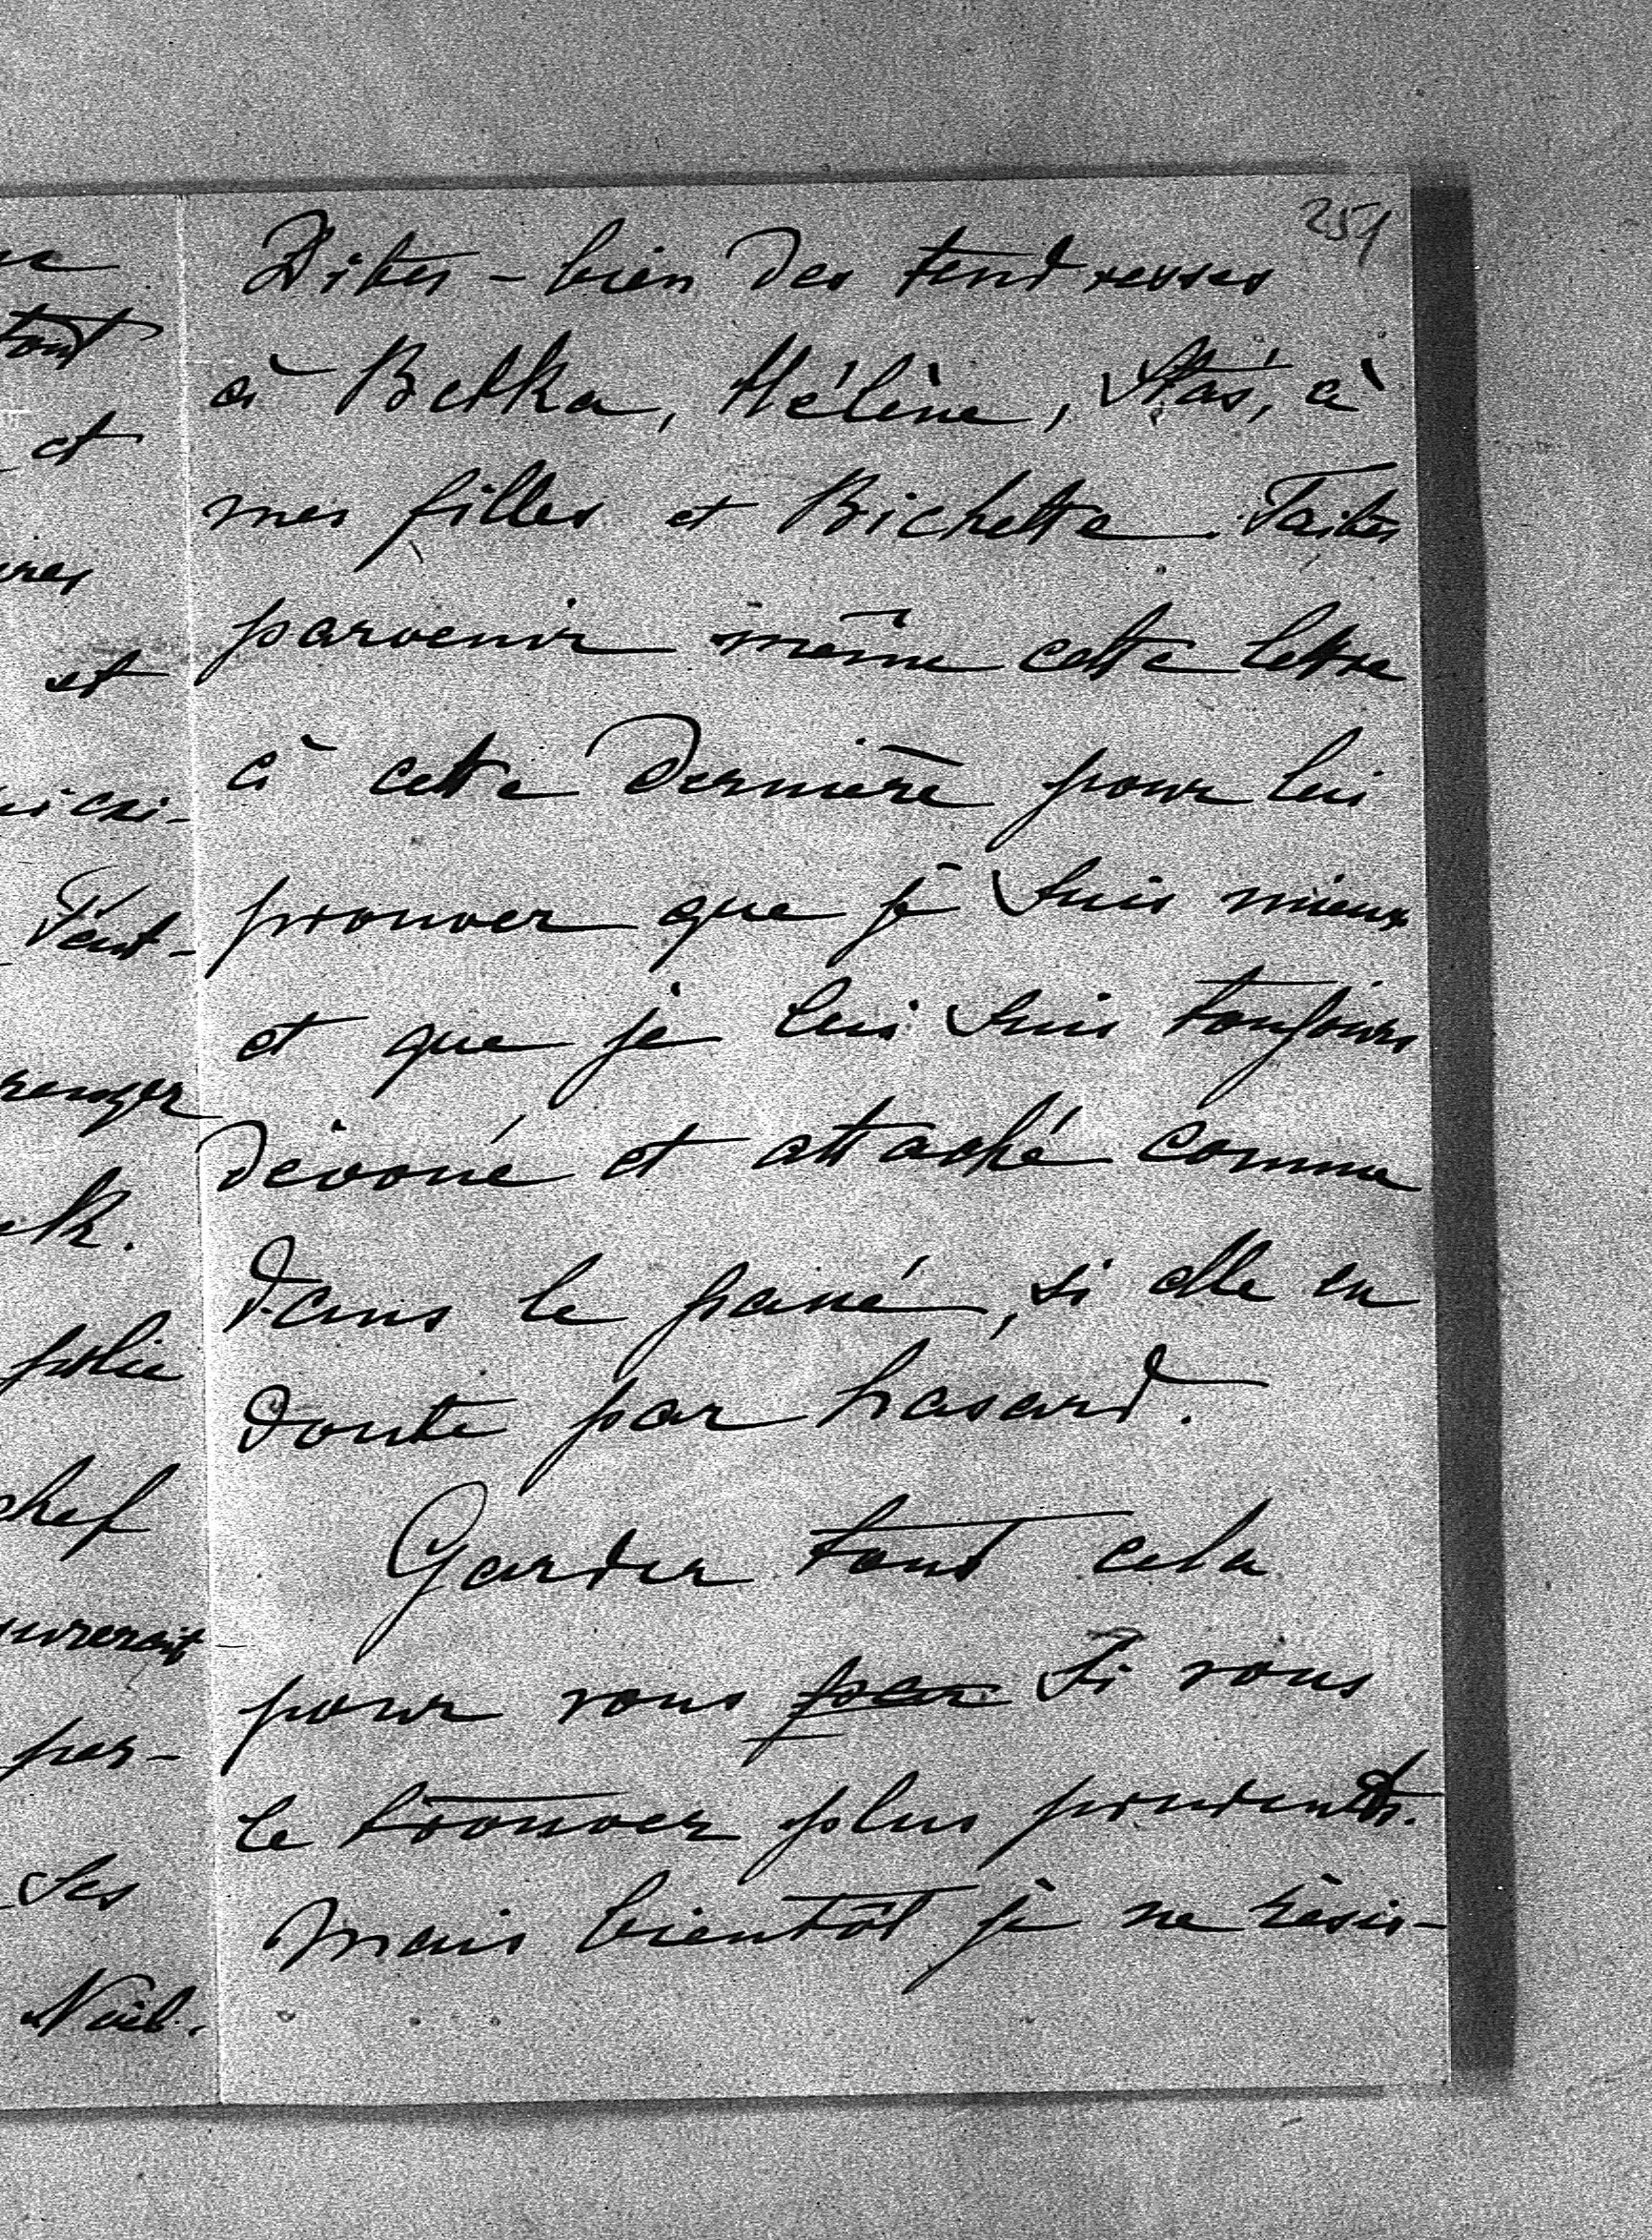 251
Dites-bien des tendresses
à Betka, Hélène, Staś, à
mes filles et Bichette. Faites
parvenir même cette lettre
à cette dernière pour lui
prouver que je suis mieux
et que je lui suis toujours
dévoué et attaché comme
dans le passé, si elle en
doute par hasard.
Garder tout cela
pour vous par Si vous
le trouver plus prudent.
Mais bientôt je ne résis-
tout
et
et
Peut-
polie
chef
per-
Ses
Noël.